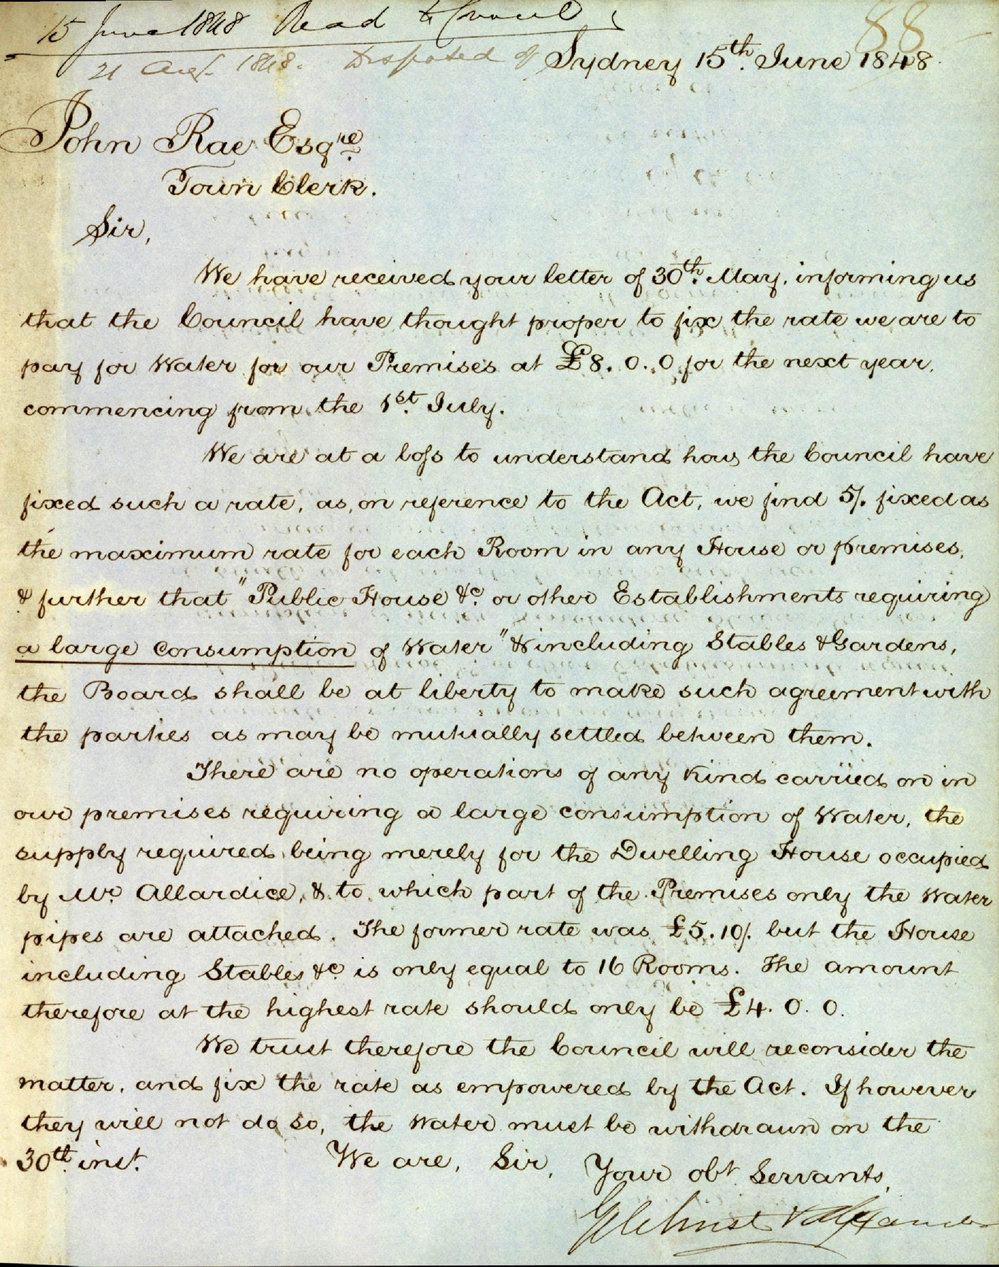 15 June 1848 Read to Council
88
21 Augt. 1848. Disposed of
Sydney 15th. June 1848.
John Rae Esqre.
Town Clerk.
Sir,
We have received your letter of 30th. May, informing us
that the Council have thought proper to fix the rate we are to
pay for Water for our Premises at £8.0.0 for the next year,
commencing from the 1st. July.
We are at a loss to understand how the Council have
fixed such a rate, as, on reference to the Act, we find 5/. fixed as
the maximum rate for each Room in any House or premises,
& further that "Public House &c. or other Establishments requiring
a large consumption of Water" & including Stables & Gardens,
the Board shall be at liberty to make such agreement with
the parties as may be mutually settled between them.
There are no operations of any kind carried on in
our premises requiring a large consumption of Water, the
supply required being merely for the Dwelling House occupied
by Mr. Allardice, & to which part of the Premises only the Water
pipes are attached. The former rate was £5.10/. but the House
including Stables &c is only equal to 16 Rooms. The amount
therefore at the highest rate should only be £4.0.0.
We trust therefore the Council will reconsider the
matter, and fix the rate as empowered by the Act. If however
they will not do so, the Water must be withdrawn on the
30th. inst. We are, Sir,
Your obt Servants,
Gilchrist & Alexander